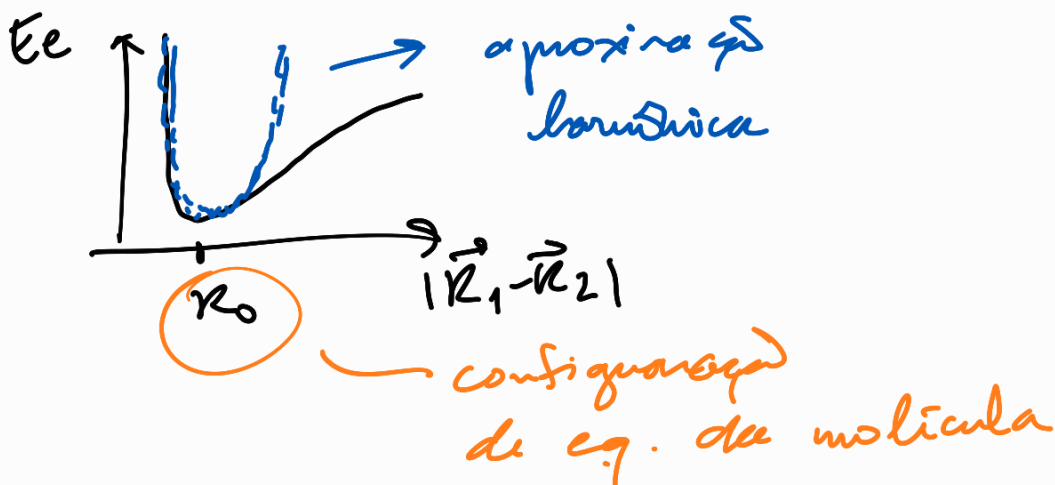 Ee
aproximação
harmônica
R₀
|R⃗₁-R⃗₂|
configuração
de eq. da molécula